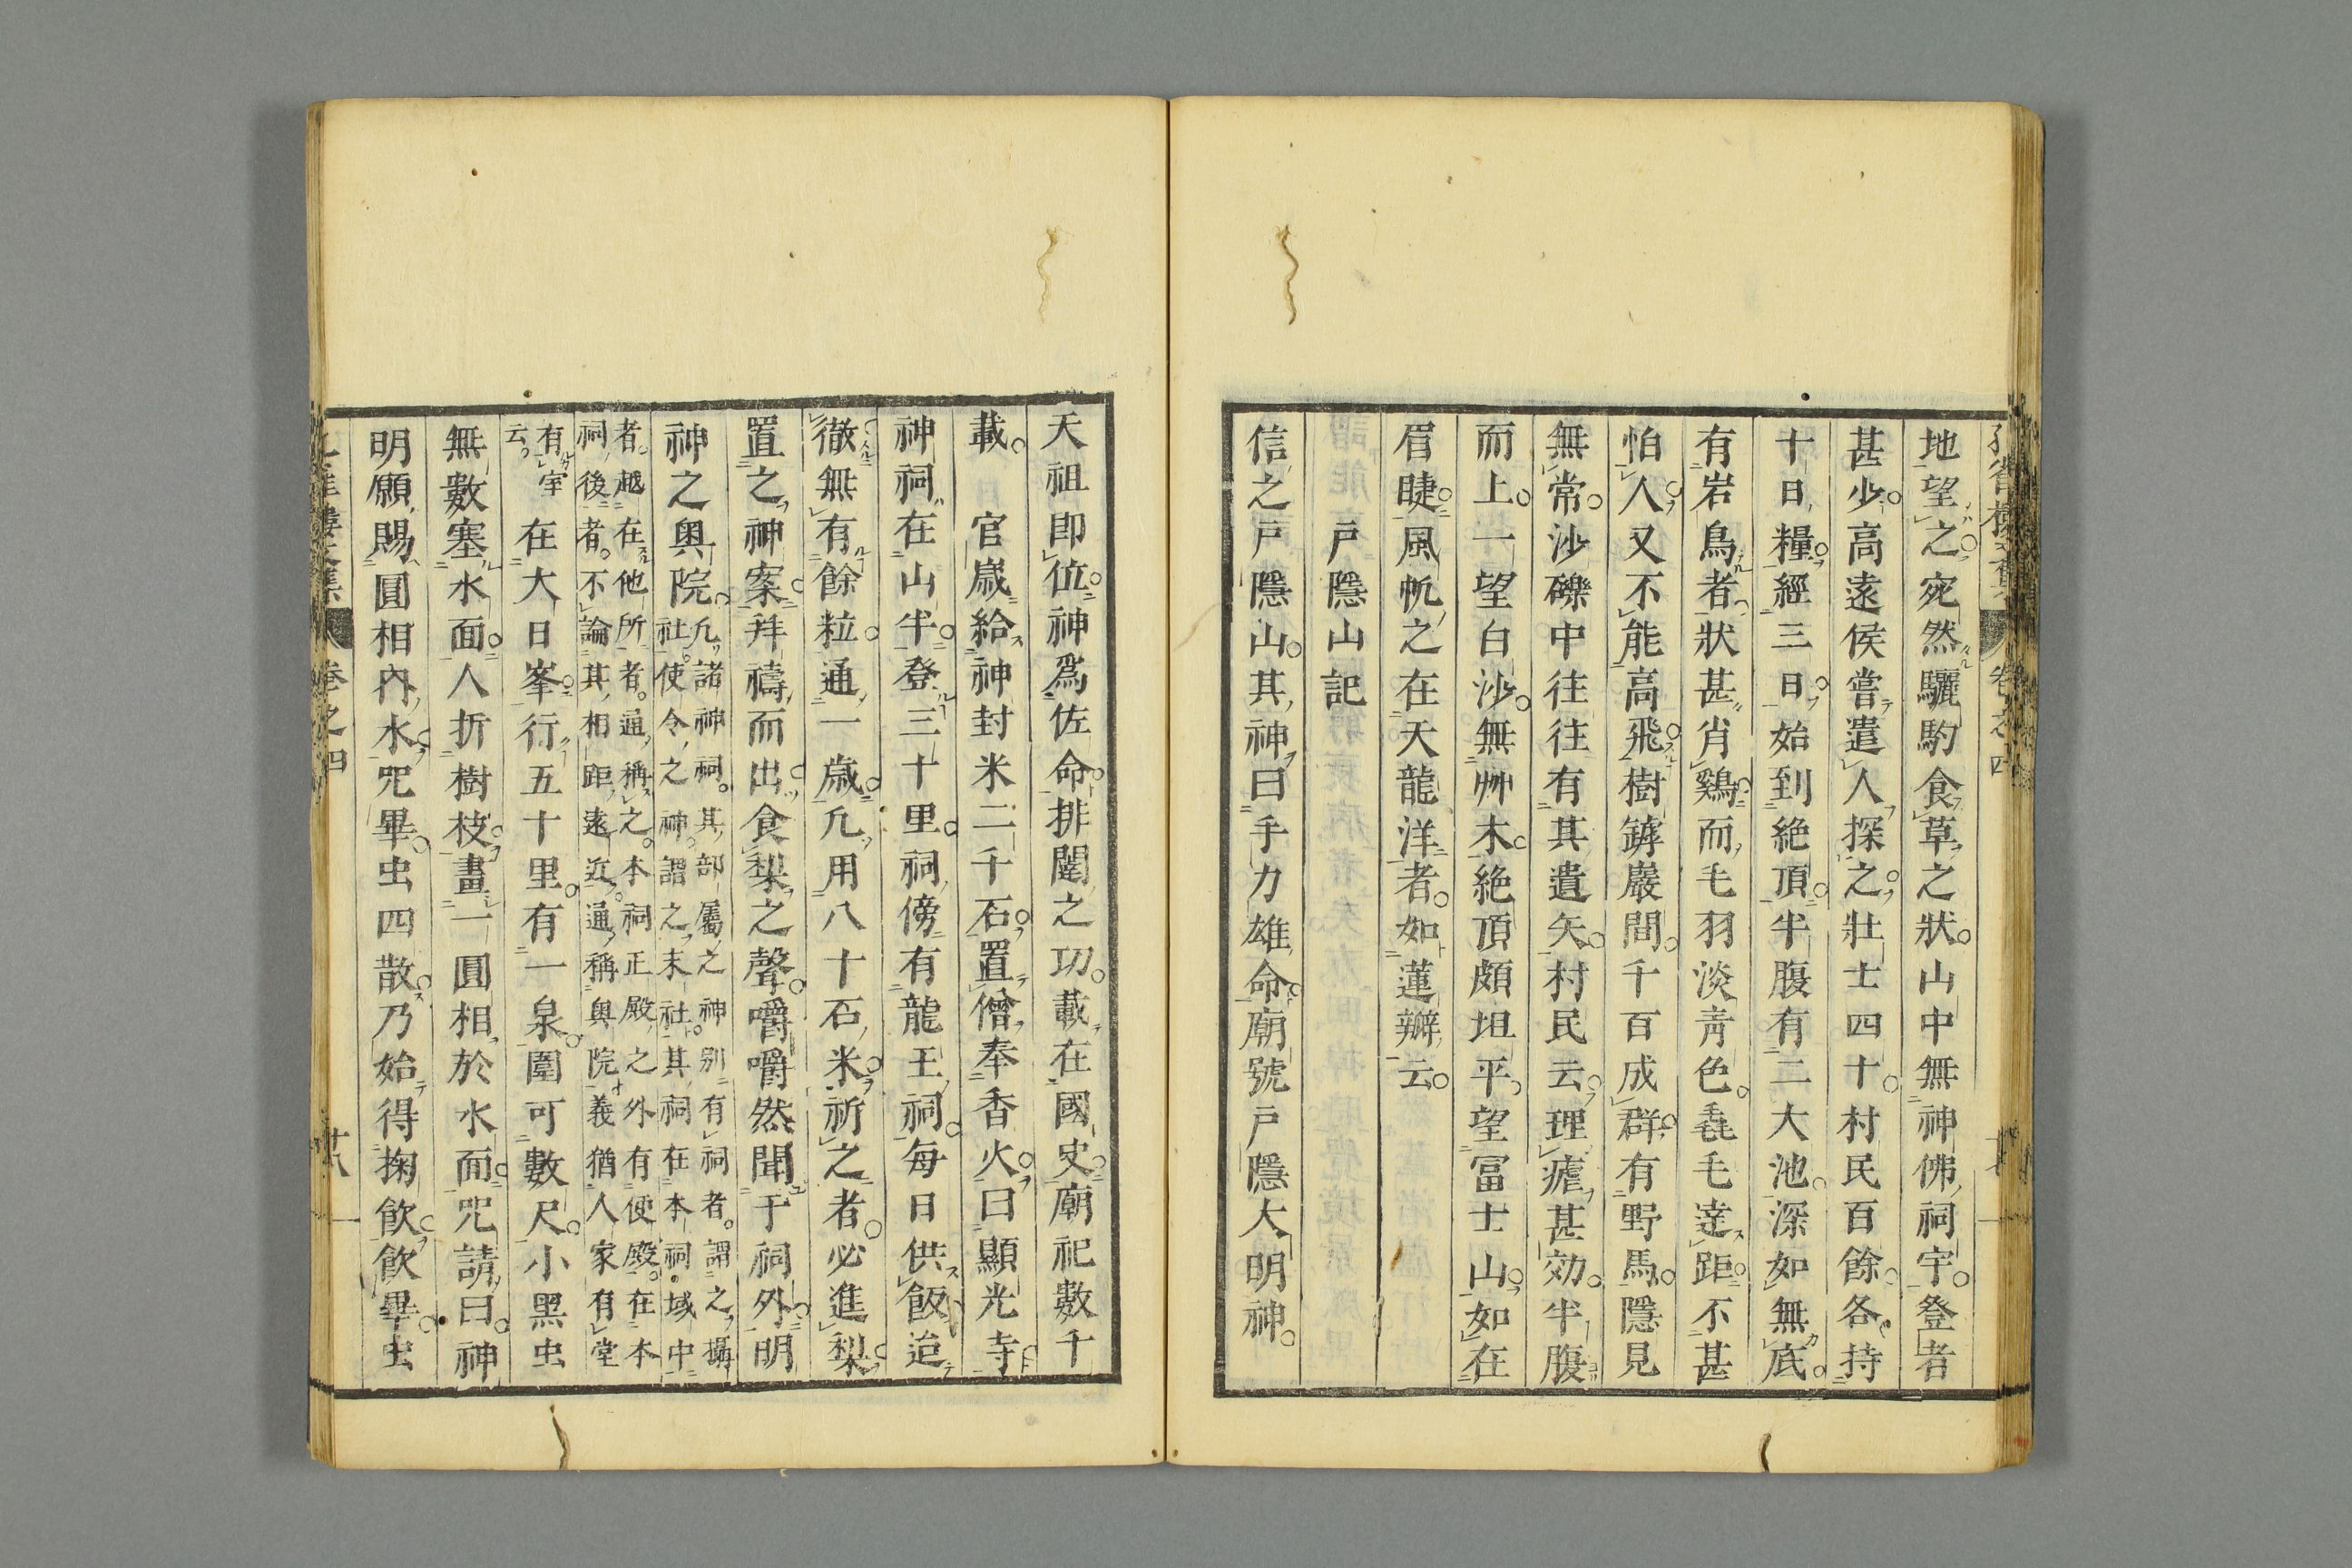 地望之宛然驪駒食草之狀山中無神佛祠宇登者
甚少高遠侯嘗遣人探之壯士四十村民百餘各持
十日糧經三日始到絶頂半腹有二大池深如無底
有岩鳥者狀甚肖鷄而毛羽淡青色毳毛達距不甚
怕人又不能高飛樹罅巖間千百成群有野馬隱見
無常沙礫中往往有其遺矢村民云理瘧甚効半腹
而上一望白沙無艸木絶頂頗坦平望冨士山如在
眉睫風帆之在天龍洋者如蓮瓣云
戸隱山記
信之戸隱山其神曰手力雄命廟號戸隱大明神
天祖即位神爲佐命排闥之功載在國史廟祀數千
載 官歳給神封米二千石置僧奉香火曰顯光寺
神祠在山半登三十里祠傍有龍王祠每日供飯迨
徹無有餘粒通一歳凢用八十石米祈之者必進梨
置之神案拜禱而出食梨之聲嚼嚼然聞于祠外明
神之輿院
凢諸神祠其部屬之神別有祠者謂之攝
社使令之神謂之末社其祠在本祠域中
者越在他所者通稱之本祠正殿之外有便殿在本
祠後者不論其相距遠近通稱輿院義猶人家有堂
有室
云
在大日峯行五十里有一泉圍可數尺小黑虫
無數塞水面人折樹枝畫一圓相於水面咒請曰神
明願賜圓相內水咒畢虫四散乃始得掬飲飲畢虫
卷之四